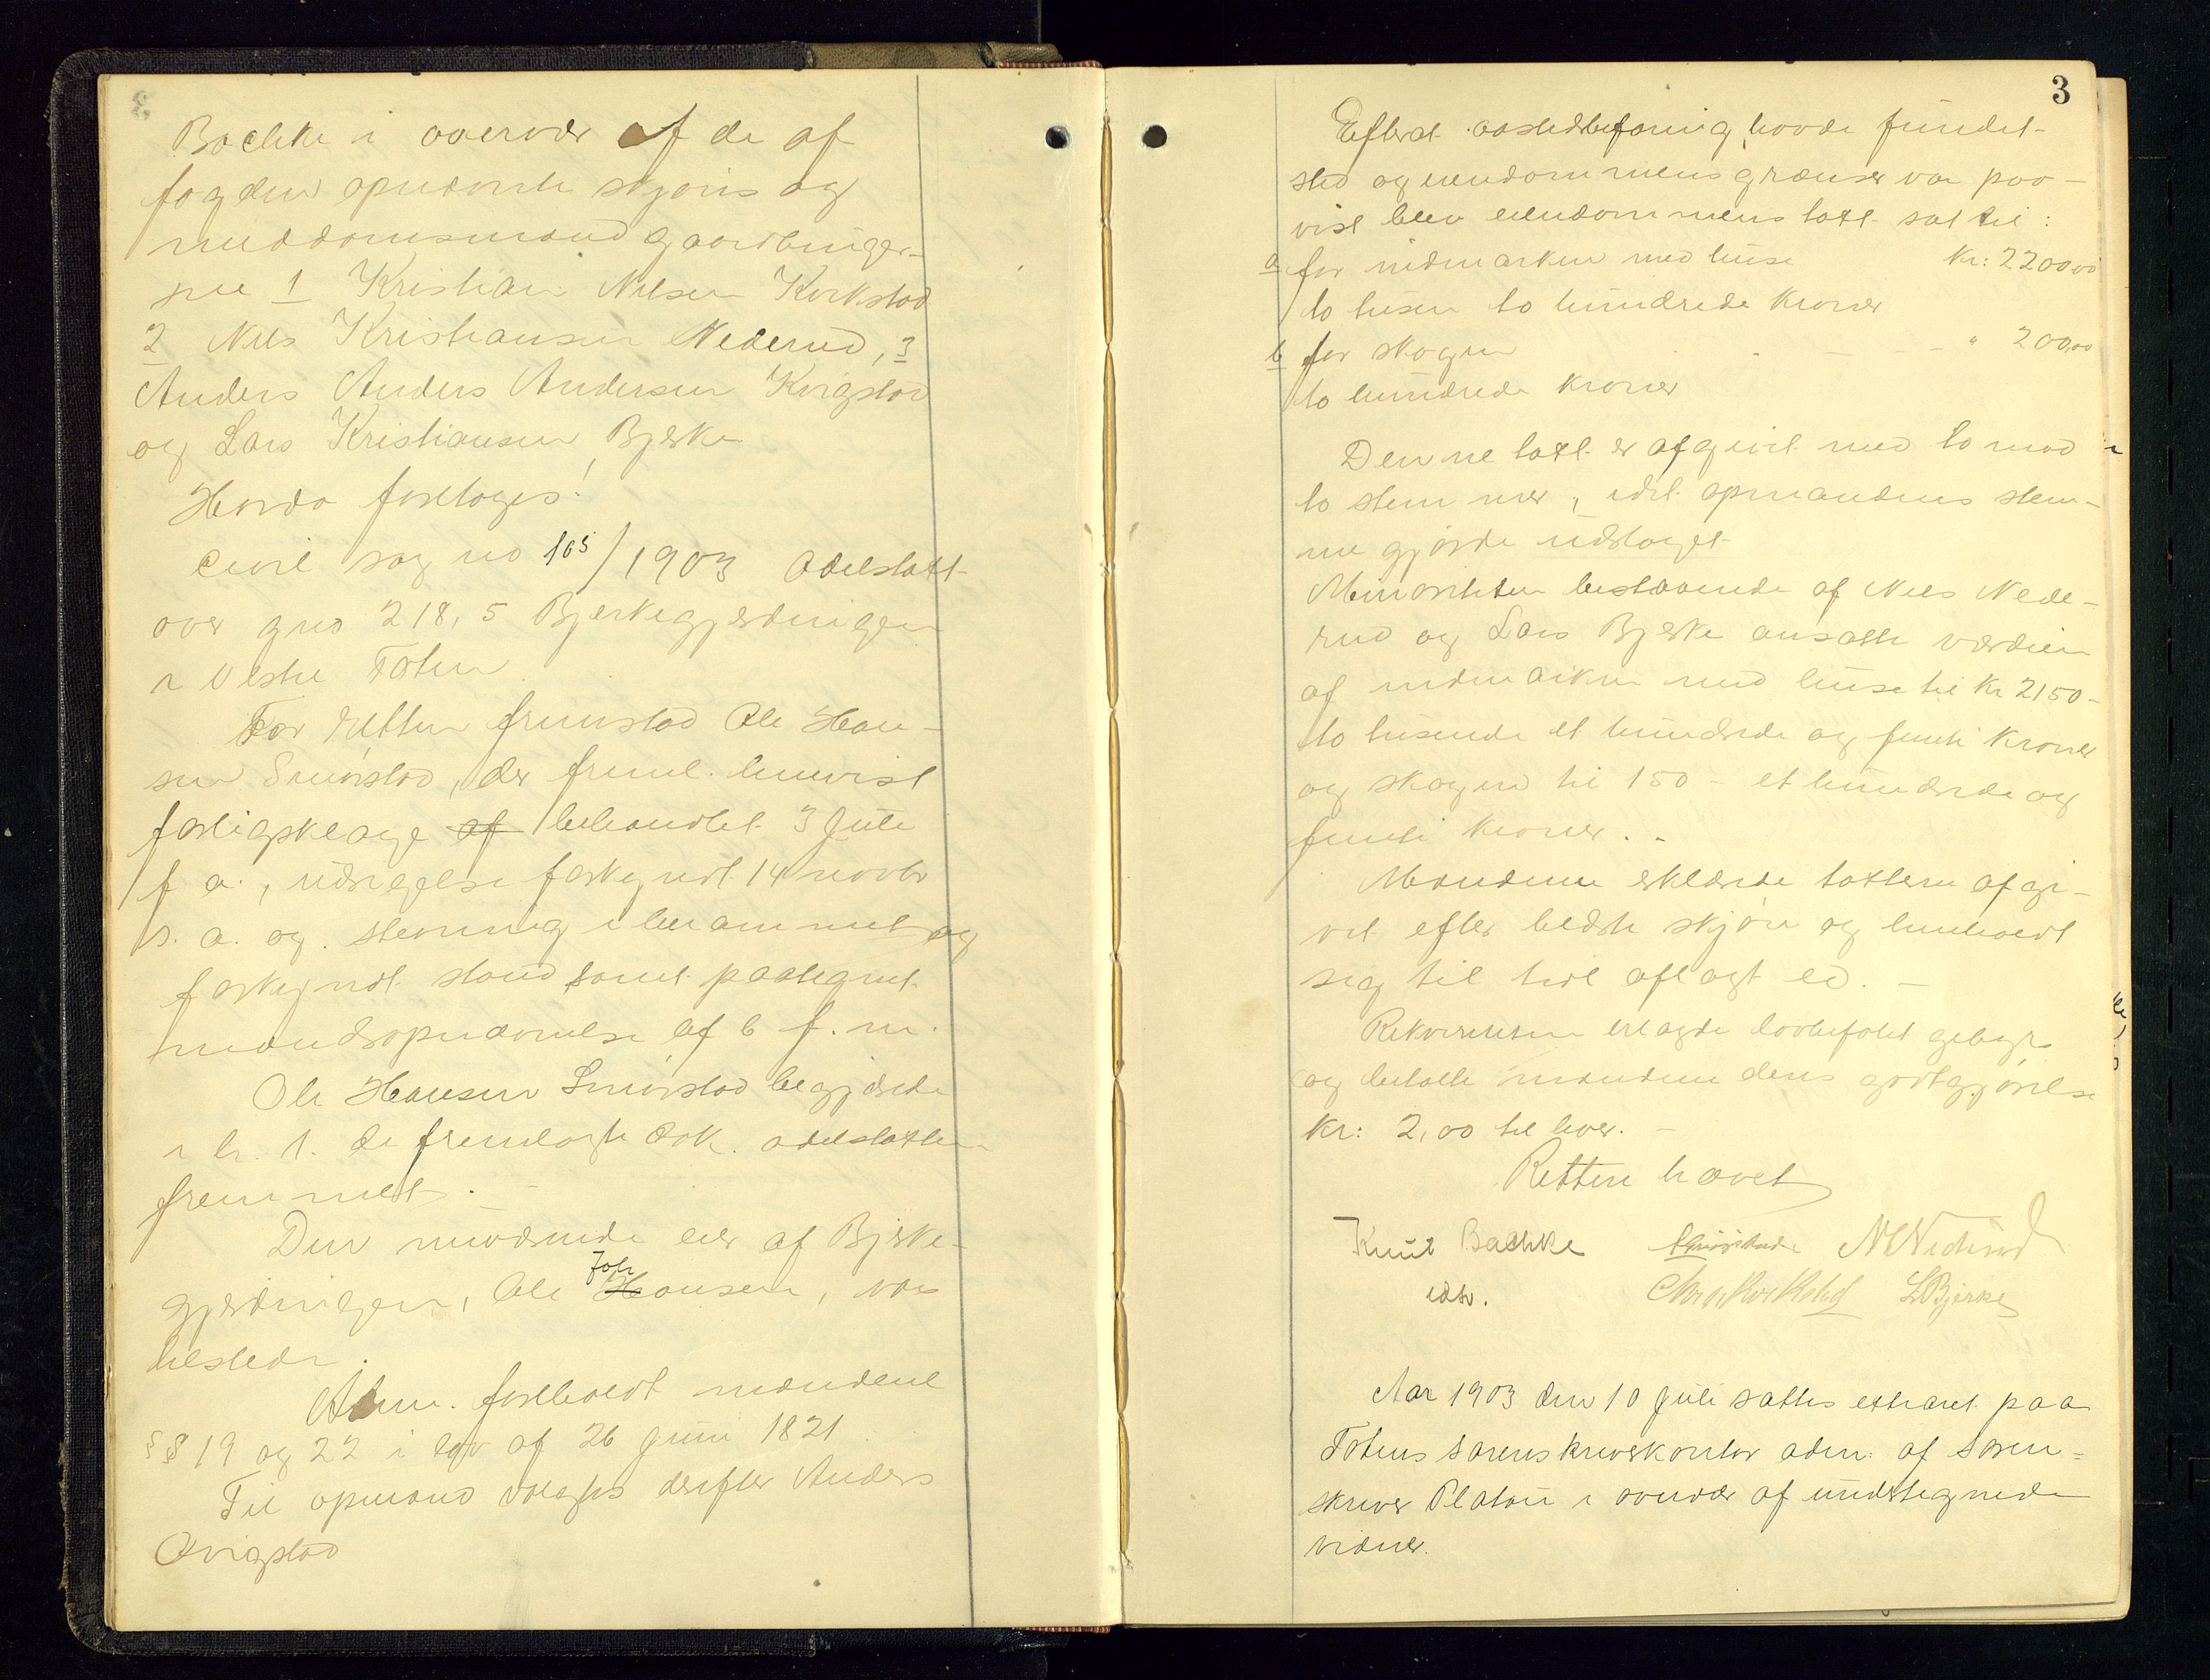 Bachke i overvær af de af
fogden opnævnte skjøns og
meddomsmænd gaardbruger-
ne 1 Kristian Nilsen Kirkstad
2 Nils Kristiansen Nederud, 3
Anders Anders Andersen Kvigstad
og Lars Kristiansen Bjerke
Hvorda foretoges:
Civil sag no 165/1903 Odelstaxt
over gno 218,5 Bjerkegjerdingen
i Vestre Toten
For retten fremstod Ole Han-
sen Smørstad, der freml. henvist
forligsklage af behandlet 3 Juli
f a., udsigelse forkyndt 14 novbr
s. a. og stevning i berammet og
forkyndt stand samt paategnet
mændsopnævnelse af 6 f. m.
Ole Hansen Smørstad begjærede
i h. t. de fremlagte dok. odelstaxten
fremmet. -
Den nuværende eier af Bjerke-
gjerdingen, Ole Joh Hansen, var
tilstede.
Adm. foreholdt mændene
§§ 19 og 22 i lov af 26 Juni 1821
Til opmand valgtes derefter Anders
Qvigstad
3
Efterat aastedsbefaring havde fundet
sted og eiendommens grænser var paa-
vist blev eiendommens taxt sat til:
a for indmarken med huse Kr: 2200,00
to tusen to hundrede Kroner
b for skogen - - - " 200,00
to hundrede kroner
Denne taxt er afgivet med to mod
to stemmer, idet opmandens stem-
me gjorde udslaget
Minoriteten bestaaende af Nils Nede-
rud og Lars Bjerke ansatte værdien
af indmarken med huse til Kr 2150-
to tusende et hundrede og femti Kroner
og skogen til 150 - et hundrede og
femti kroner. -
Mændene erklærede taxterne afgi-
vet efter bedste skjøn og henholdt
sig til tidl aflagt ed. -
Rekvirenten erlagde lovbefalet gebyr
og betalte mændene deres godtgjørelse
Kr: 2,00 til hver. -
Retten hævet
Knut Bachke N Nederud
edsv. Chr Kirkstad L Bjerke
Aar 1903 den 10 Juli sattes extraret paa
Totens sorenskriverkontor adm: af soren=
skriver Platou i overvær af undertegnede
vidner.